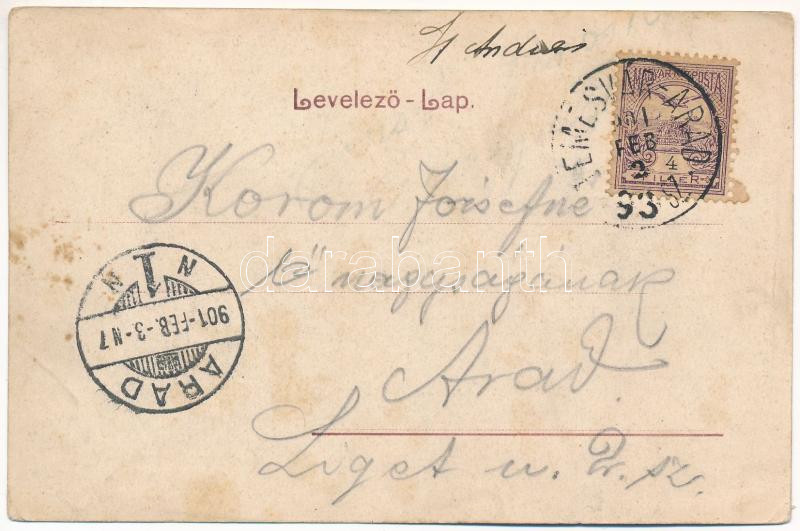 Levelező-Lap.
MAGYAR KIR. POSTA
4
FILLÉR
TEMESVÁR-ARAD
901
FEB
2
93
Korom Józsefné
Ő nagyságának
Arad.
Liget u. 2. sz.
N 1 N
901-FEB.-3-N7
ARAD
darabanth